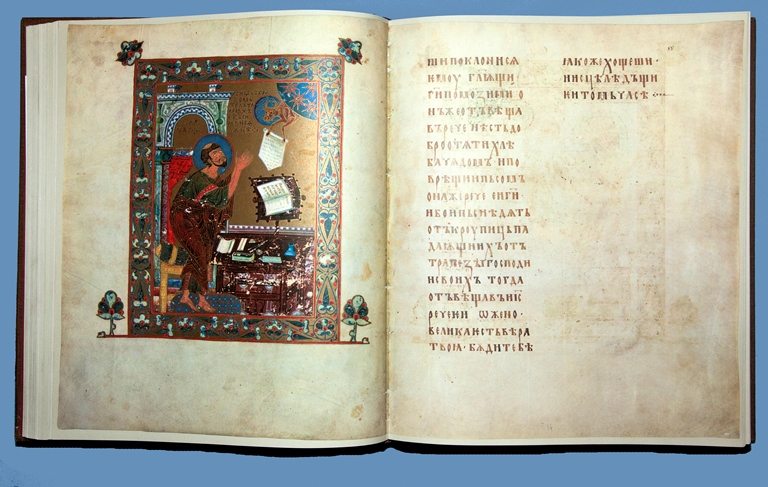 ШИПОКЛОНИСѦ
ѤМОУ ГЛ҃ѬШТИ
Г҃ИПОМОЗИМИ О
НЪЖЕОТЪВѢЩА
ВЪРЕЧЕ НѢСТЬДО
БРООТѦТИХЛѢ
БАЧѦДОМЪ ИПО
ВРѢЩИИПЬСОМЪ
ОНАЖЕРЕЧЕ ЕИГ҃И
ИБОИПЬСИѢДѦТЬ
ОТЪКРОУПИЦЬПА
ДАѬЩИИХЪОТЪ
ТРАПЕЗЪІГОСПОДИ
ИСВОИХЪ ТОГДА
ОТЪВѢЩАВЪИС҃
РЕЧЕѤИ ѠЖЕНО·
ВЕЛИКАѤСТЬВѢРА
ТВОꙖ· БѪДИТЕБѢ
ꙖКОЖЕХОЩЕШИ·
ИИСЦѢЛѢДЪЩИ
ѤИТОМЬЧАСѢ·